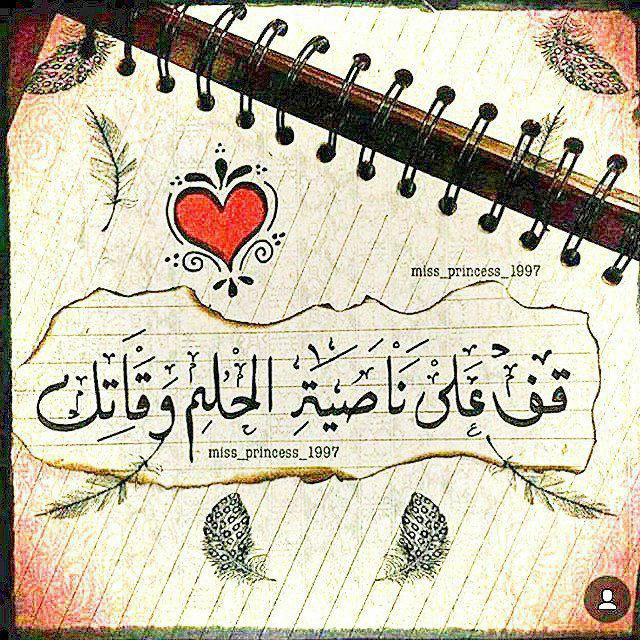 miss_princess_1997
قف عَلىٰ نَاصيَةِ الحُلمِ وَقَاتِل
miss_princess_1997